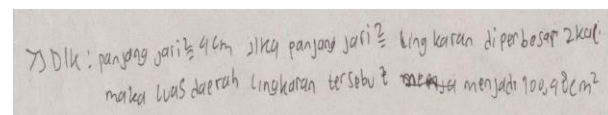 7) Dik : panjang jari² = 4cm jika panjang jari² lingkaran diperbesar 2 kali
maka luas daerah lingkaran tersebut menjadi 100,48cm²